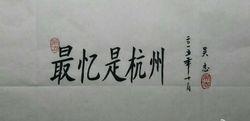 最忆是杭州
二〇一五年十月
吴志